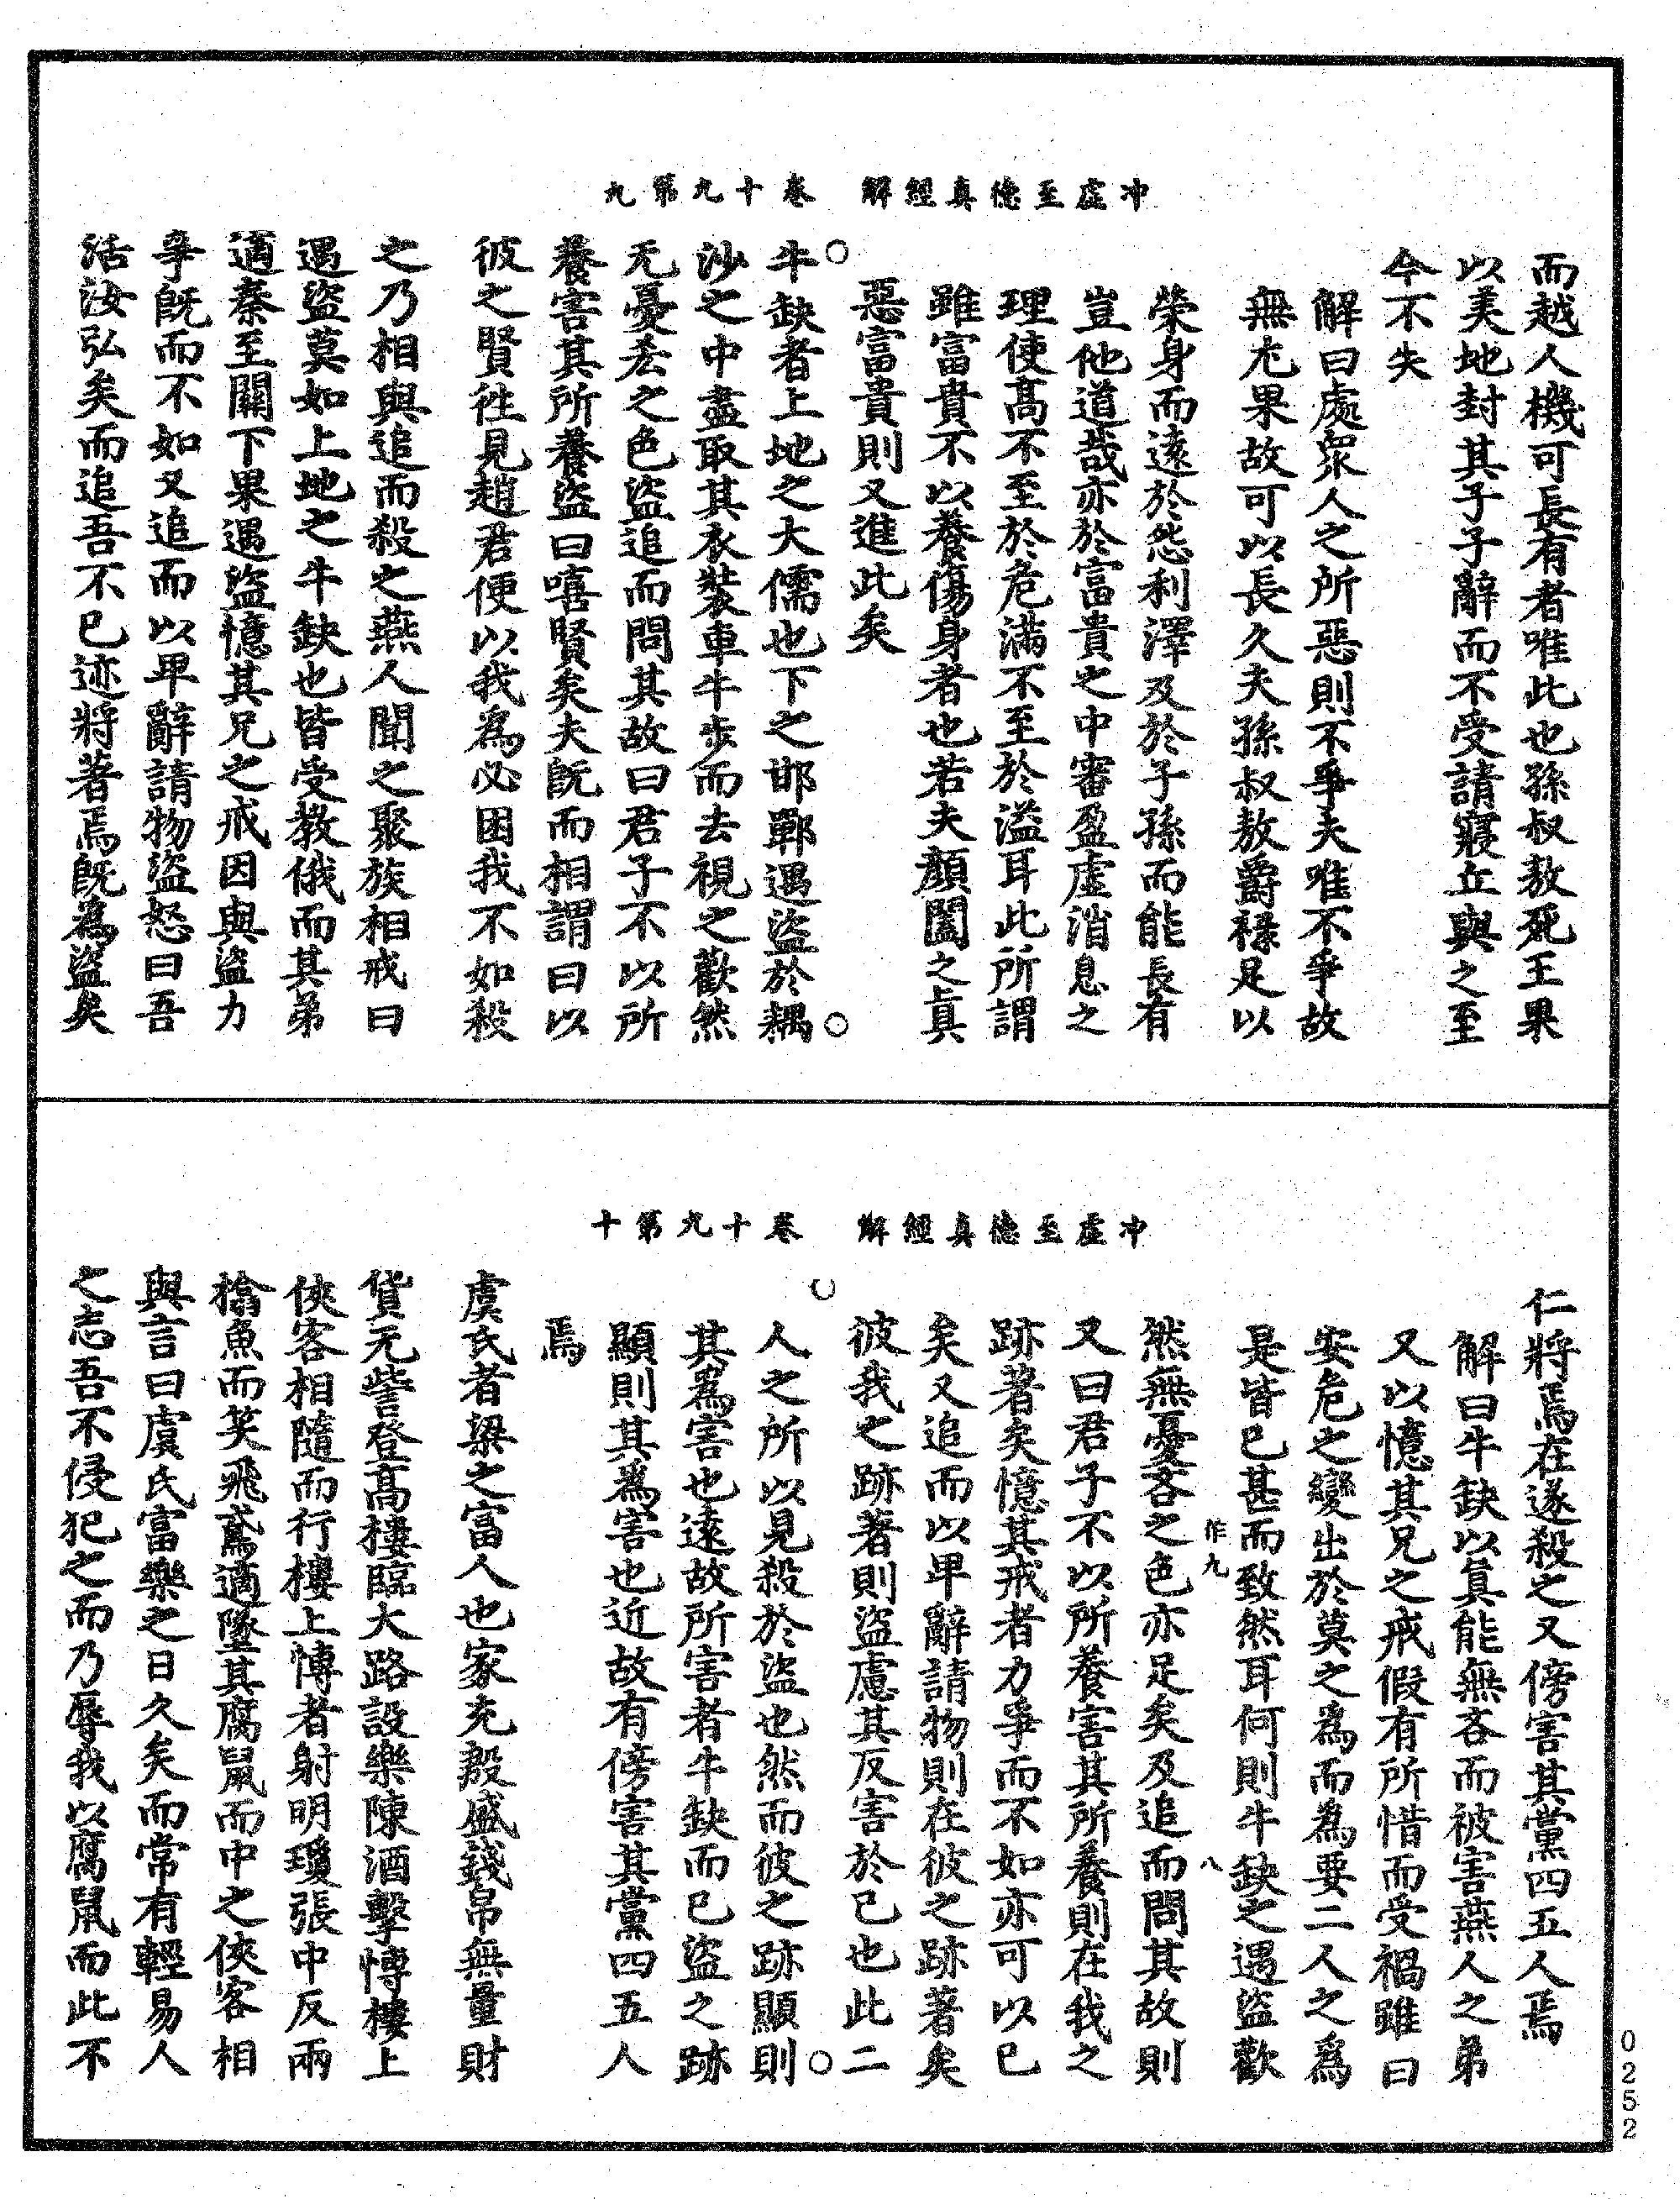 冲虛至德真經解　卷十九第九
而越人機可長有者唯此也孫叔敖死王果
以美地封其子子辭而不受請寢丘與之至
今不失
解曰處眾人之所惡則不爭夫唯不爭故
無尤果故可以長久夫孫叔敖爵祿足以
榮身而遠於怨利澤及於子孫而能長有
豈他道哉亦於富貴之中審盈虛消息之
理使高不至於危滿不至於溢耳此所謂
雖富貴不以養傷身者也若夫顏闔之真
惡富貴則又進此矣
牛缺者上地之大儒也下之邯鄲遇盜於耦
沙之中盡取其衣裝車牛步而去視之歡然
无憂吝之色盜追而問其故曰君子不以所
養害其所養盜曰嘻賢矣夫既而相謂曰以
彼之賢徃見趙君便以我為必困我不如殺
之乃相與追而殺之燕人聞之聚族相戒曰
遇盜莫如上地之牛缺也皆受教俄而其弟
適秦至關下果遇盜憶其兄之戒因與盜力
爭既而不如又追而以卑辭請物盜怒曰吾
活汝弘矣而追吾不已迹將著焉既為盜矣
冲虛至德真經解　卷十九第十
仁將焉在遂殺之又傍害其黨四五人焉
解曰牛缺以真能無吝而被害燕人之弟
又以憶其兄之戒假有所惜而受禍雖曰
安危之變出於莫之為而為要二人之為
是皆已甚而致然耳何則牛缺之遇盜歡
作九　八
然無憂吝之色亦足矣及追而問其故則
又曰君子不以所養害其所養則在我之
跡著矣憶其戒者力爭而不如亦可以已
矣又追而以卑辭請物則在彼之跡著矣
彼我之跡著則盜慮其反害於己也此二
人之所以見殺於盜也然而彼之跡顯則
其為害也遠故所害者牛缺而已盜之跡
顯則其為害也近故有傍害其黨四五人
焉
虞氏者梁之富人也家充殷盛錢帛無量財
貨无訾登高樓臨大路設樂陳酒擊博樓上
俠客相隨而行樓上博者射明瓊張中反兩
㩉魚而笑飛鳶適墜其腐鼠而中之俠客相
與言曰虞氏富樂之日久矣而常有輕易人
之志吾不侵犯之而乃辱我以腐鼠而此不
0252